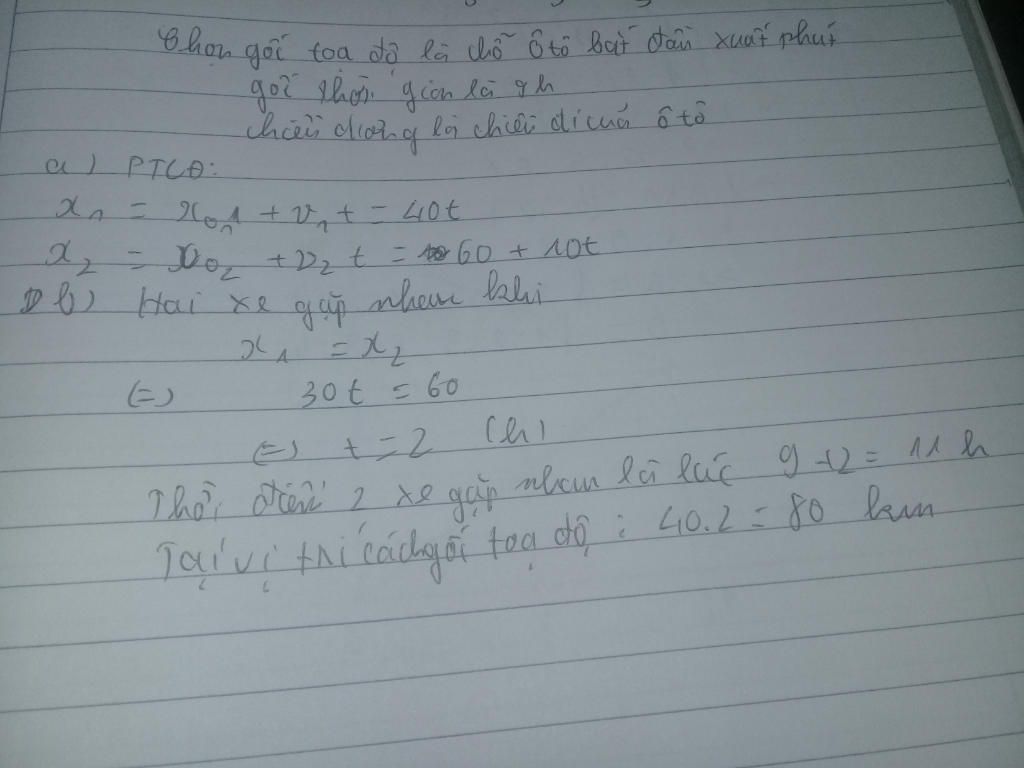 Chọn gốc toạ độ là chỗ ô tô bắt đầu xuất phát
gốc thời gian là 9h
chiều dương là chiều đi của ô tô
a) PTCĐ:
x₁ = x₀₁ + v₁t = 40t
x₂ = x₀₂ + v₂ t = 60 + 10t
b) Hai xe gặp nhau khi
x₁ = x₂
(=) 30t = 60
(=) t = 2 (h)
Thời điểm 2 xe gặp nhau là lúc 9+2 = 11 h
Tại vị trí cách gốc toạ độ : 40.2 = 80 km